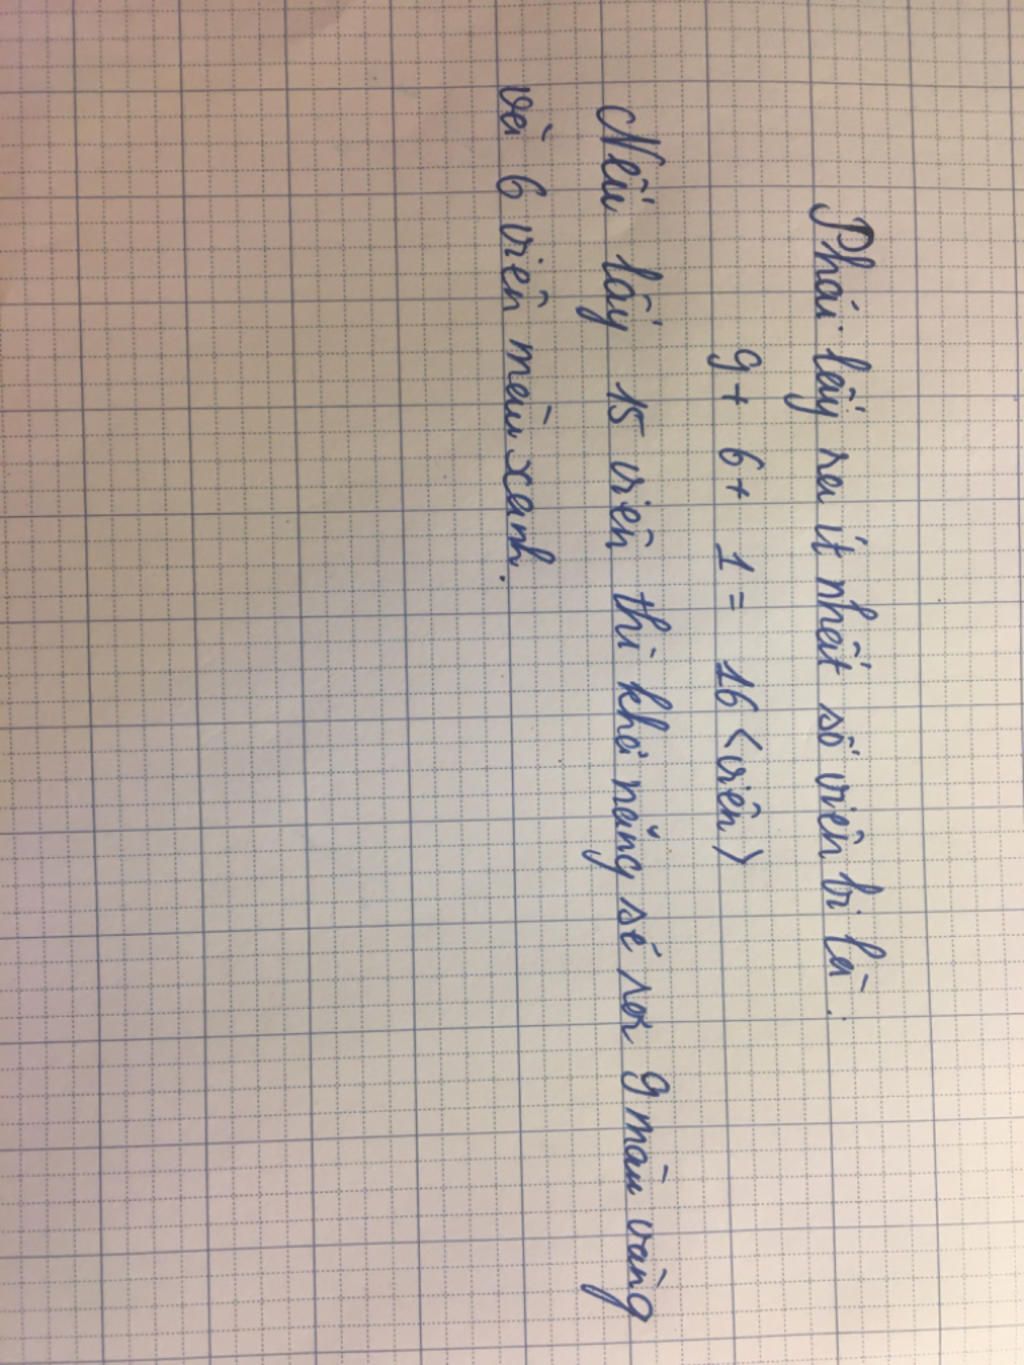 Phải lấy ra ít nhất số viên bi là:
9 + 6 + 1 = 16 <viên>
Nếu lấy 15 viên thì khả năng sẽ rơi 9 màu vàng
và 6 viên màu xanh.